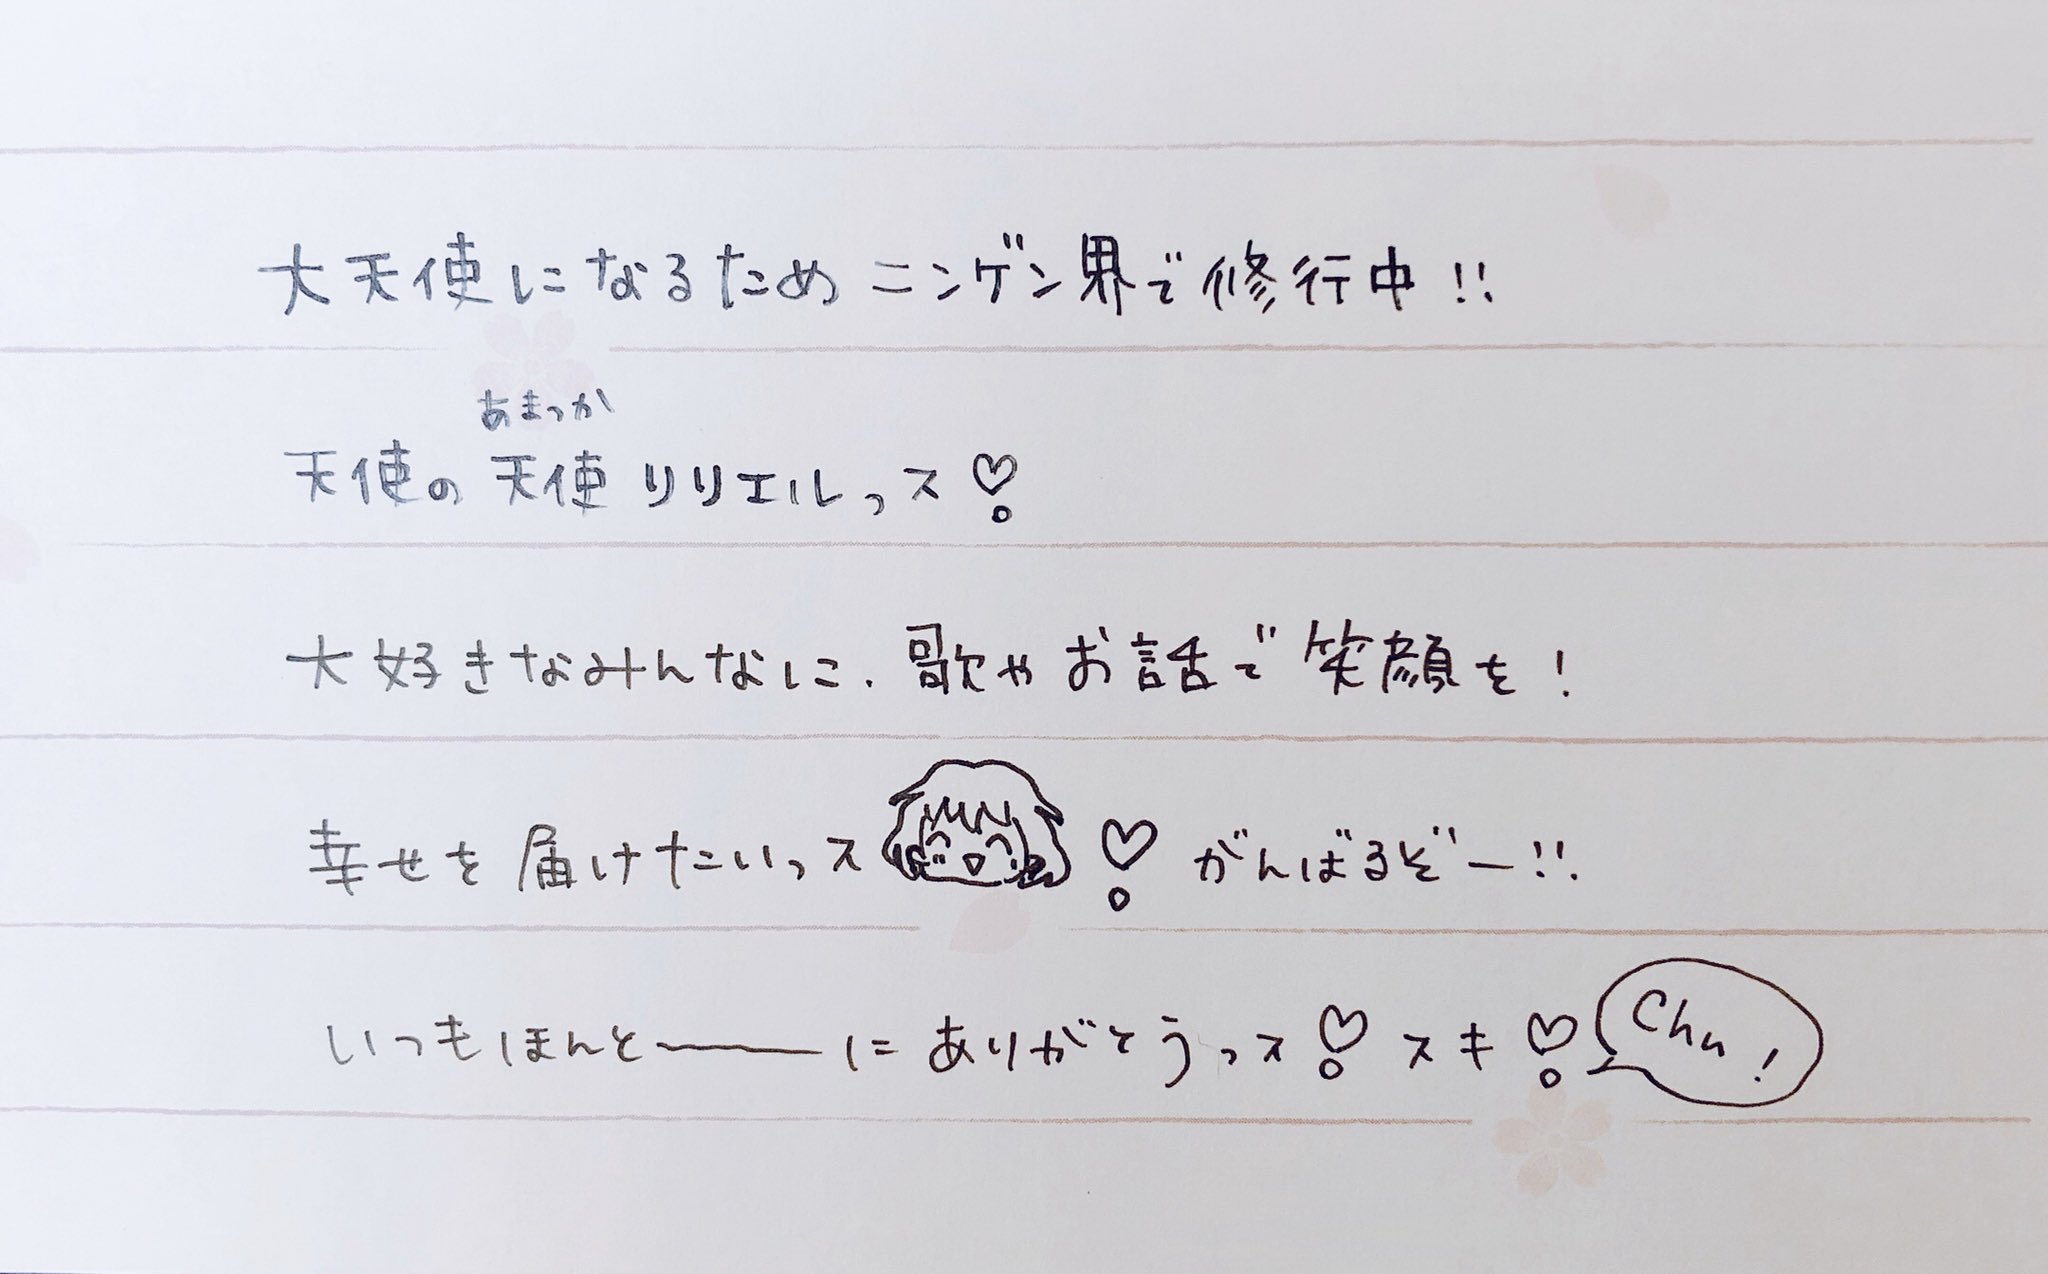 大天使になるため ニンゲン界で修行中!!
あまつか
天使の 天使 リリエルっス♡
大好きなみんなに、歌やお話で笑顔を!
幸せを届けたいっス♡ がんばるぞー!!
いつもほんと――に ありがとうっス♡ スキ♡ Chu!